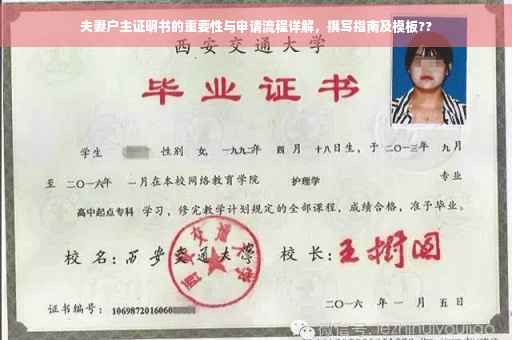 夫妻户主证明书的重要性与申请流程详解，撰写指南及模板??
西安交通大学
毕业证书
学生 性别 女, 一九九二年 四月 十八日生，于二〇一三年 九月
至 二〇一六年 一月在本校网络教育学院 护理学 专业
高中起点专科 学习，修完教学计划规定的全部课程，成绩合格，准予毕业。
校名：西安交通大学 校长：王树国
证书编号：1069872016060
二〇一六年 一月 五日
微信号: iezhinuiyoujiao